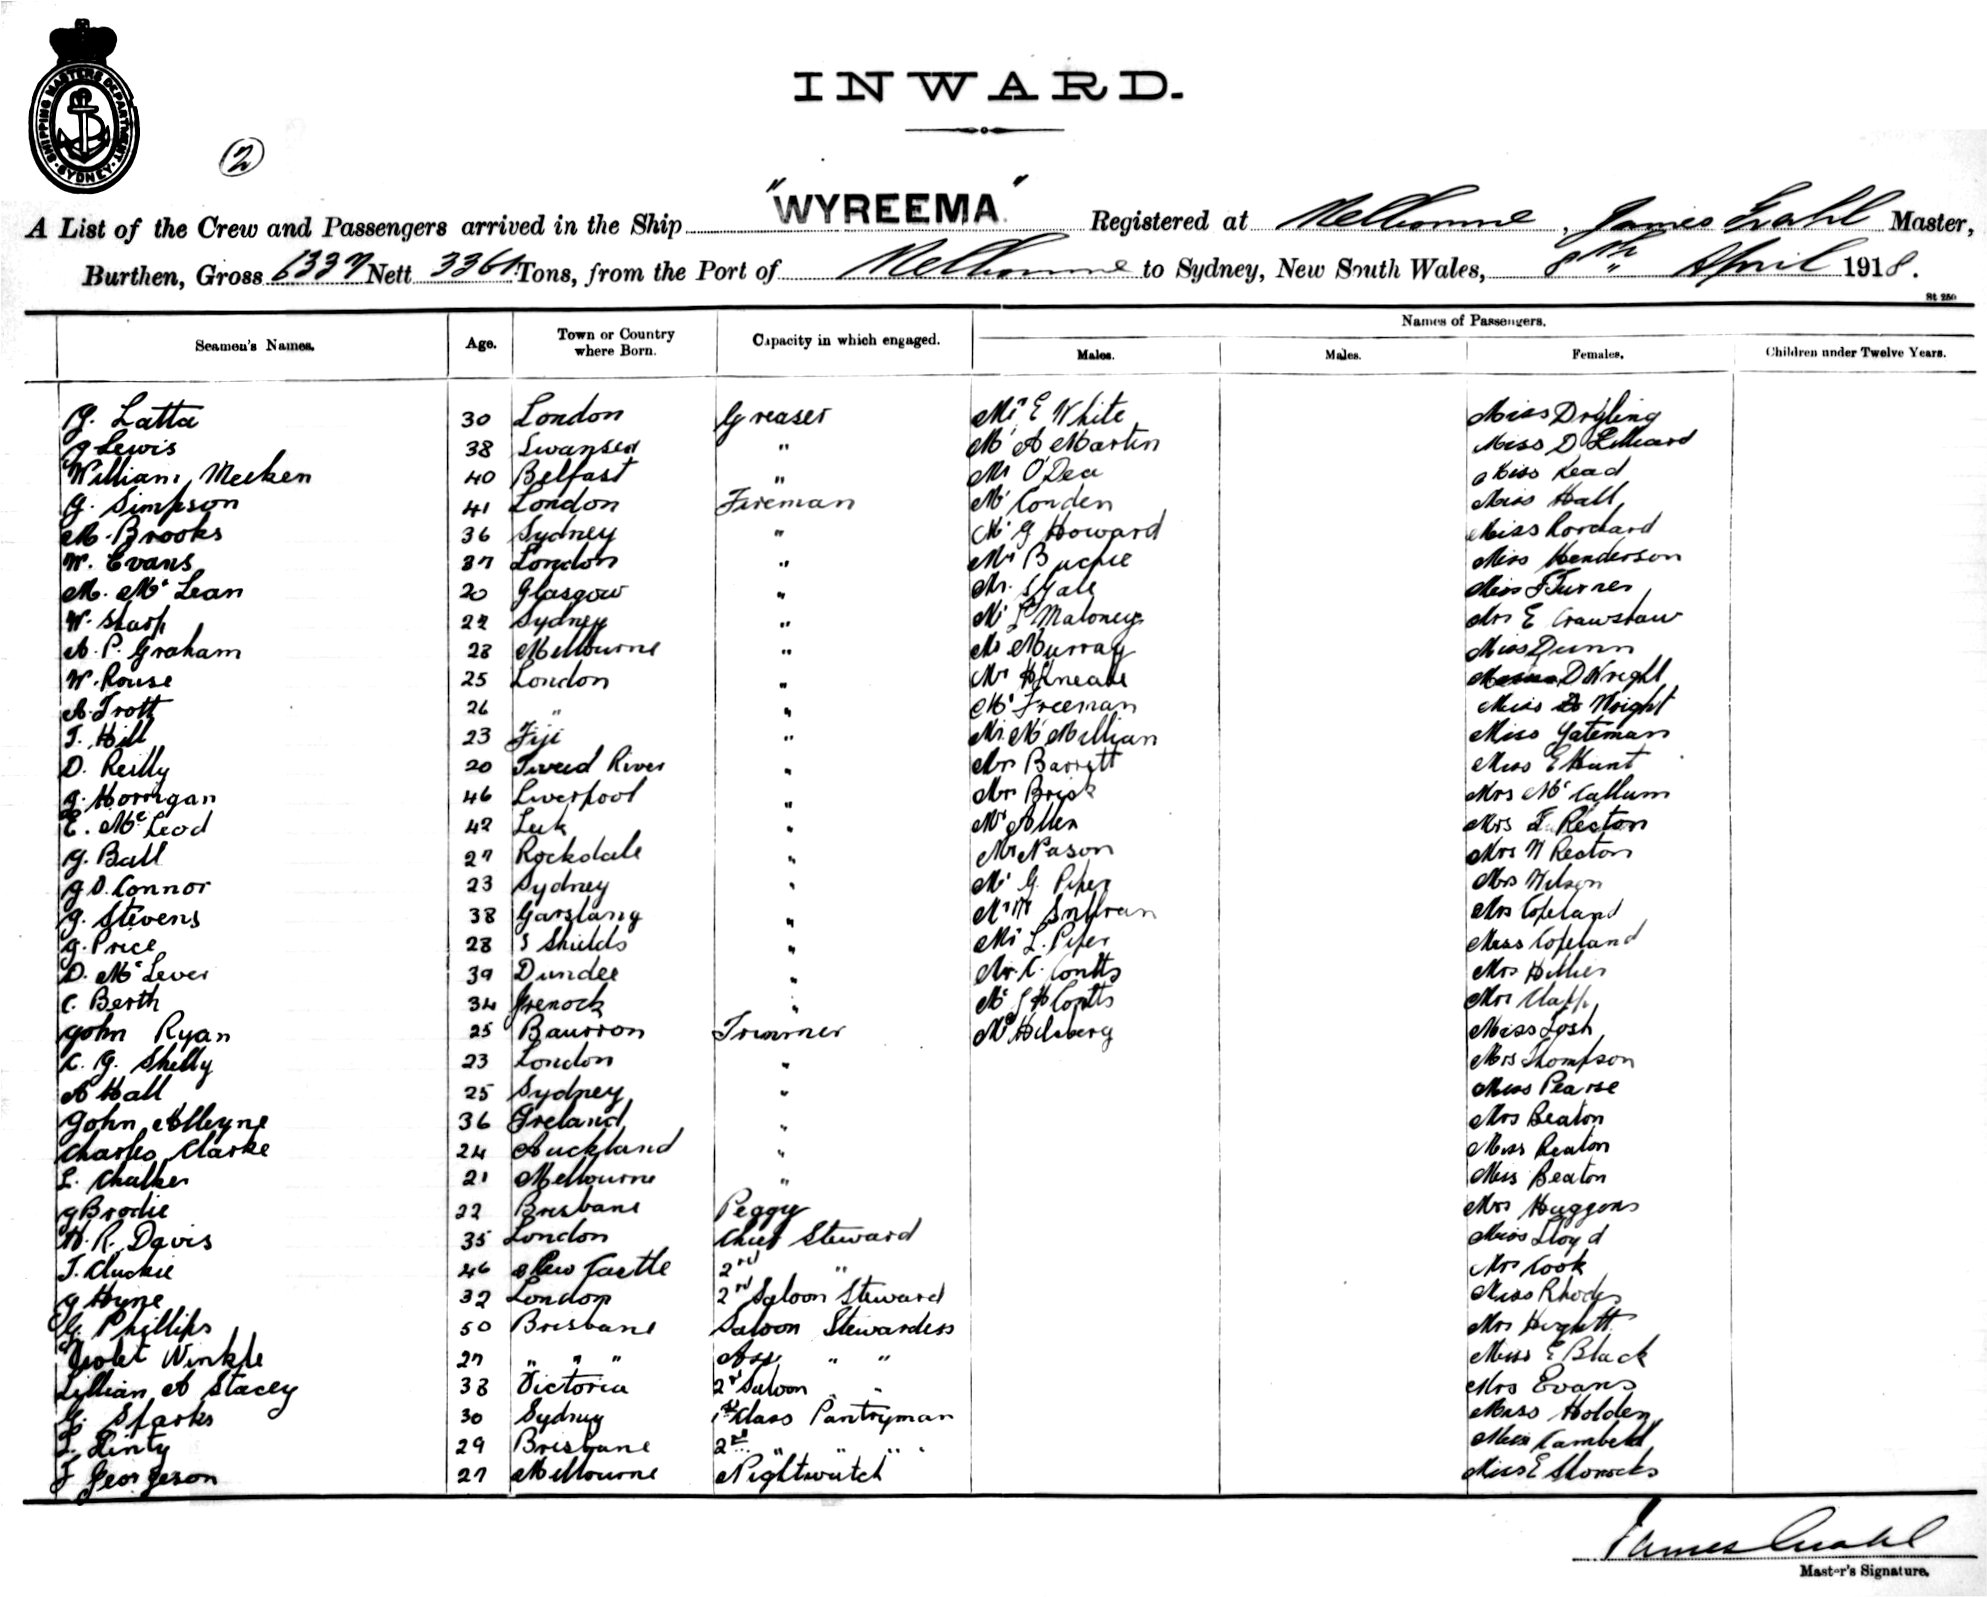 SHIPPING MASTERS DEPARTMENT
SYDNEY
INWARD.
2
A List of the Crew and Passengers arrived in the Ship "WYREEMA" Registered at Melbourne, James Grahl Master,
Burthen, Gross 6337 Nett 3361 Tons, from the Port of Melbourne to Sydney, New South Wales, 8th April 1918.
St 250
Names of Passengers.
Seamen's Names. Age. Town or Country where Born. Capacity in which engaged. Males. Males. Females. Children under Twelve Years.
J. Latta 30 London Greaser Mr E White Miss Dryling
J Lewis 38 Swansea " Mr A Martin Miss D Lilleard
William Meeken 40 Belfast " Mr O'Dea Miss Read
J. Simpson 41 London Fireman Mr Conden Miss Hall
M. Brooks 36 Sydney " Mr G Howard Miss
W. Evans 37 London " Mr Miss Henderson
M. McLean 20 Glasgow " Mr. Yale Miss F Turner
W. Sharp 22 Sydney " Mr Maloney Mrs E Crawshaw
A. P. Graham 28 Melbourne " Mr Murray Miss Dunn
W. Rouse 25 London " Mr H Kneale D Wright
A. Trott 26 " " Mr Freeman Miss Wright
T. Hill 23 Fiji " Mr McMillian Miss Yateman
D. Reilly 20 Tweed River " Mr Barrett Miss E Hunt
J. Horrigan 46 Liverpool " Mr Brisk Mrs McCallum
E. McLeod 42 Leek " Mr Allen Mrs Reston
J. Ball 27 Rockdale " Mr Nason Mrs W Reston
J O. Connor 23 Sydney " Mr G. Piper Mrs Wilson
J. Stevens 38 Garstang " Mr Mrs Copeland
J. Price 28 S Shields " Mr L. Piper Miss Copeland
D. McLever 39 Dundee " Mr. C. Coutts Mrs Hillier
C. Berth 34 Grenock " Mr J H Coutts Mrs Clapp
John Ryan 25 Baurron Trimmer Mr Hilsberg Miss Tosh
C. G. Shelly 23 London " Mrs Thompson
A Hall 25 Sydney " Miss Pearse
John Alleyne 36 Ireland " Mrs Beaton
Charles Clarke 24 Auckland " Miss Beaton
L. Chalker 21 Melbourne " Miss Beaton
J Brodie 22 Brisbane Peggy Mrs Huggons
H. R. Davis 35 London Chief Steward Miss Lloyd
T. Cluckie 46 New Castle 2nd " Mrs Cook
J Hyne 32 London 2nd Saloon Steward Miss Rhodes
G. Phillips 50 Brisbane Saloon Stewardess Mrs Hughett
Violet Winkle 27 " " " Ass " " Miss E Black
Lillian A Stacey 38 Victoria 2nd Saloon " Mrs Evans
G. Sparks 30 Sydney 1st Class Pantryman Miss Holden
L. Linty 29 Brisbane 2nd " " " Miss Cambell
F Georgeson 27 Melbourne Nightwatch Miss E Shorrocks
James Grahl
Master's Signature.